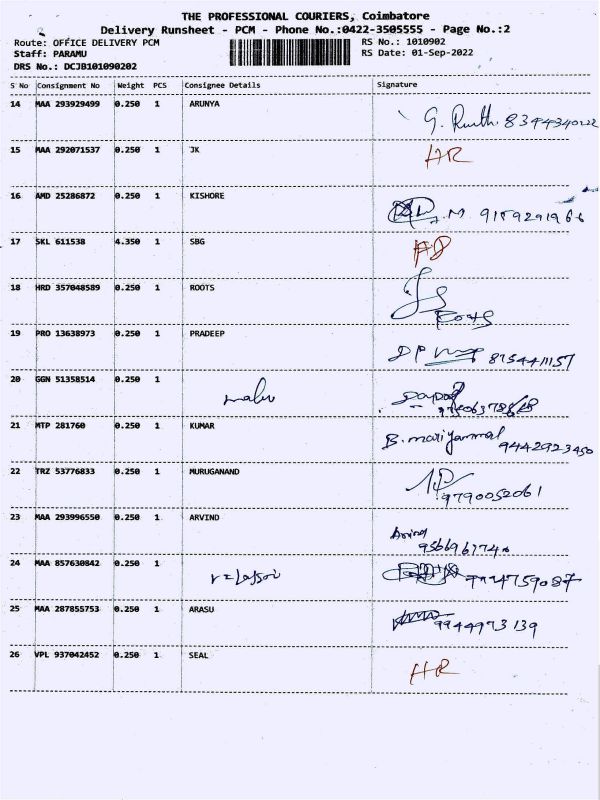 THE PROFESSIONAL COURIERS, Coimbatore
Delivery Runsheet - PCM - Phone No.:0422-3505555 - Page No.:2
Route: OFFICE DELIVERY PCM RS No.: 1010902
Staff: PARAMU RS Date: 01-Sep-2022
DRS No.: DCJB101090202
S No Consignment No Weight PCS Consignee Details Signature
14 MAA 293929499 0.250 1 ARUNYA
15 MAA 292071537 0.250 1 JK HR
16 AMD 25286872 0.250 1 KISHORE
17 SKL 611538 4.350 1 SBG
18 HRD 357048589 0.250 1 ROOTS
Roots
19 PRO 13638973 0.250 1 PRADEEP
20 GGN 51358514 0.250 1
21 MTP 281760 0.250 1 KUMAR B. mariyammal
9442923450
22 TRZ 53776833 0.250 1 MURUGANAND
9790052061
23 MAA 293996550 0.250 1 ARVIND Arvind
24 MAA 857630842 0.250 1
25 MAA 287855753 0.250 1 ARASU
9944973139
26 VPL 937042452 0.250 1 SEAL HR